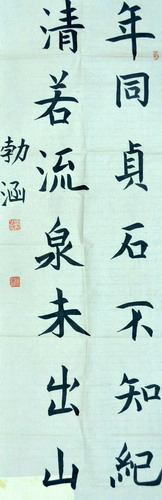 年同貞石不知紀
清若流泉未出山
勃涵